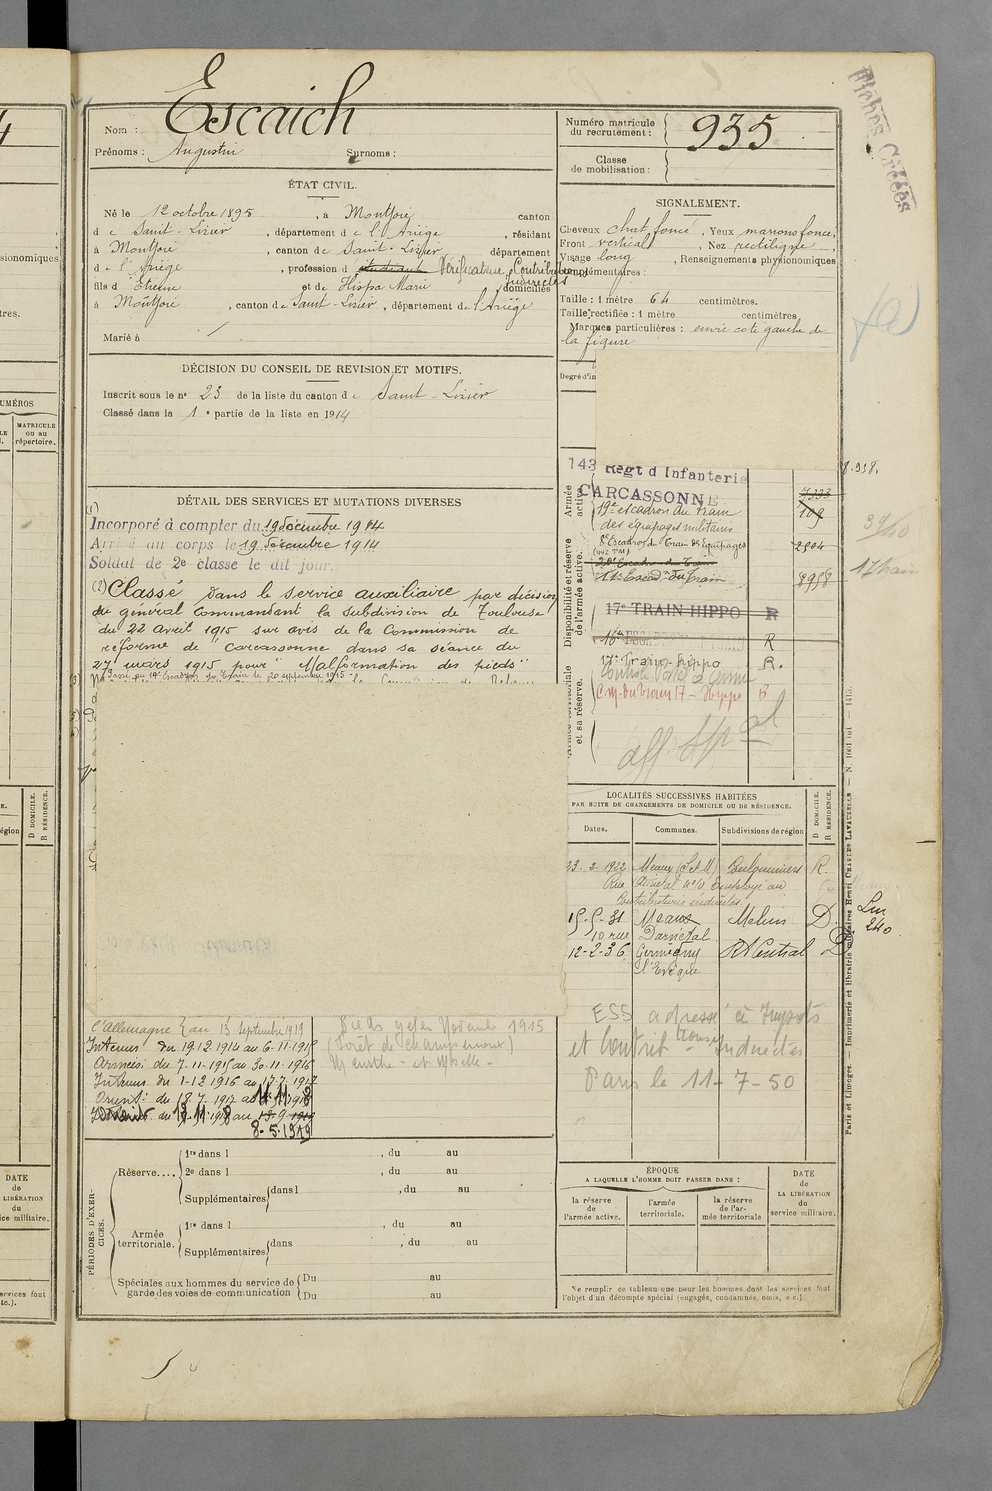 Fiches Créées
Nom : Escaich
Prénoms : Augustin Surnoms :
Numéro matricule du recrutement : 935
Classe de mobilisation :
ÉTAT CIVIL.
Né le 12 octobre 1895, à Montjoie canton
de Saint-Lizier, département de l'Ariège, résidant
à Montjoie, canton de Saint-Lizier département
de l'Ariège, profession d étudiant Vérificateur Contributions Indirectes
fils d'Etienne et de Hispa Marie domiciliés
à Montjoie, canton de Saint-Lizier, département de l'Ariège
Marié à
SIGNALEMENT.
Cheveux chat. foncé, Yeux marrons foncé,
Front vertical, Nez rectiligne,
Visage long, Renseignements physionomiques
complémentaires :
Taille : 1 mètre 64 centimètres.
Taille rectifiée : 1 mètre centimètres
Marques particulières : envie coté gauche de
la figure
DÉCISION DU CONSEIL DE REVISION ET MOTIFS.
Inscrit sous le n° 23 de la liste du canton de Saint-Lizier
Classé dans la 1e partie de la liste en 1914
Degré d'in
DÉTAIL DES SERVICES ET MUTATIONS DIVERSES
Incorporé à compter du 19 Décembre 1914
Arrivé au corps le 19 Décembre 1914
Soldat de 2e classe le dit jour.
(2) Classé dans le service auxiliaire par décision
du général Commandant la subdivision de Toulouse
du 22 avril 1915 sur avis de la Commission de
réforme de Carcassonne dans sa séance du
27 mars 1915 pour "Malformation des pieds"
Passé au 19e Escadron du Train le 20 septembre 1915
143 Regt d Infanterie
CARCASSONNE
19e escadron du train
des équipages militaires
8e Escadron du Train des Equipages
(442 TM)
20e Escadron du Train
11e Escad. du Train
17e TRAIN HIPPO R
16e R
17e Train-hippo R.
Cm. du train 17 - Hippo R
aff. Spal
Armée active.
Disponibilité et réserve de l'armée active.
Armée territoriale et sa réserve.
7333
109
2504
8958
39/40
17 train
LOCALITÉS SUCCESSIVES HABITÉES
PAR SUITE DE CHANGEMENTS DE DOMICILE OU DE RÉSIDENCE.
Dates. Communes. Subdivisions de région D DOMICILE. R RÉSIDENCE.
23-2-1922 Meaux (S et M) Coulommiers R.
Employé au
Contributions indirectes.
15-5-31 Meaux Melun D.
10 rue Darnetal
12-2-36 Germigny R Central D
l'Evêque
ESS adressé à Impôts
et Contrib tions Indirectes
Paris le 11-7-50
l'Allemagne au 13 septembre 1919
Intérieur du 19.12.1914 au 6-11-1915
Armées du 7-11-1915 au 30-11-1916
Intérieur du 1-12-1916 au 17-7-1917
Orient du 18.7.1917 au 11 11 18
Intérieur du 12 11 18 au 13-9-1919
8-5-1919
Pieds gelés Novembre 1915
(Forêt de Champenoux)
Meurthe-et-Moselle-
PÉRIODES D'EXERCICES.
Réserve.... 1re dans l , du au
2e dans l , du au
Supplémentaires dans l , du au
Armée territoriale. 1re dans l , du au
Supplémentaires dans , du au
Spéciales aux hommes du service de garde des voies de communication Du au
Du au
ÉPOQUE
A LAQUELLE L'HOMME DOIT PASSER DANS :
la réserve de l'armée active.
l'armée territoriale.
la réserve de l'armée territoriale
DATE de LA LIBÉRATION du service militaire.
Ne remplir ce tableau que pour les hommes dont les services font
l'objet d'un décompte spécial (engagés, condamnés, omis, etc.).
Paris et Limoges. — Imprimerie et librairie militaires Henri CHARLES-LAVAUZELLE